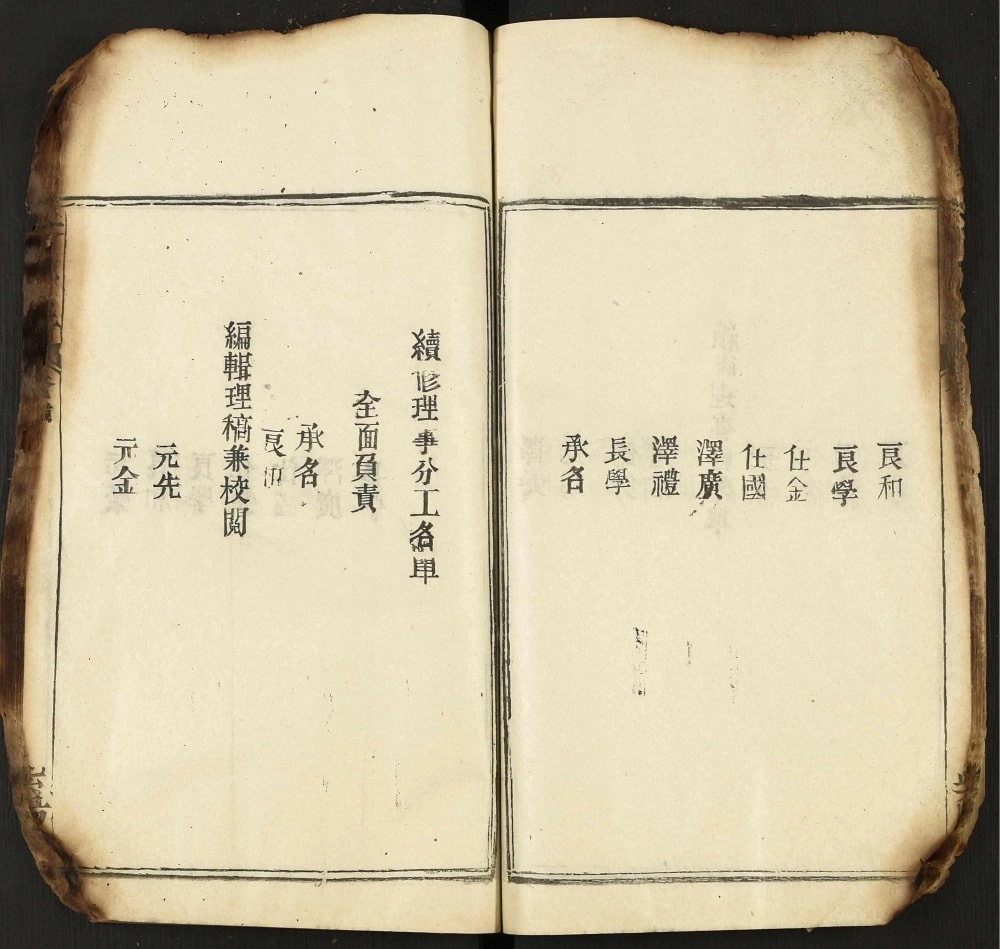 良和
良學
仕金
仕國
澤廣
澤禮
長學
承名
續修理事分工名單
全面負責
承名
良和
編輯理稿兼校閱
元先
元金